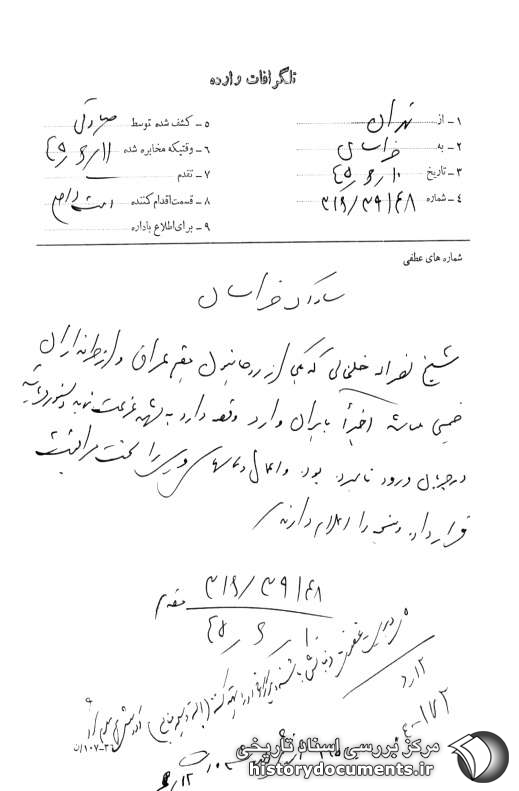 تلگرافات وارده
۱ - از تهران
۲ - به خراسان
۳ - تاریخ ۱۰/۶/۴۵
۴ - شماره ۳۱۶/۳۹۱۴۸
۵ - کشف شده توسط
۶ - وقتیکه مخابره شده ۱۱/۶/۴۵
۷ - تقدم
۸ - قسمت اقدام کننده
۹ - برای اطلاع باداره
شماره های عطفی
ساواک خراسان
شیخ نصراله خلخالی که یکی از روحانیون مقیم عراق و از طرفداران
خمینی میباشد اخیراً بایران وارد و قصد دارد به مشهد عزیمت نماید دستور فرمائید
در جریان ورود نامبرده بوده و اعمال و تماسهای وی را تحت مراقبت
قرار داده و نتیجه را اعلام دارند
۳۱۶/۳۹۱۴۸ مقدم
۱۰/۶/۴۵
مرکز بررسی اسناد تاریخی
historydocuments.ir